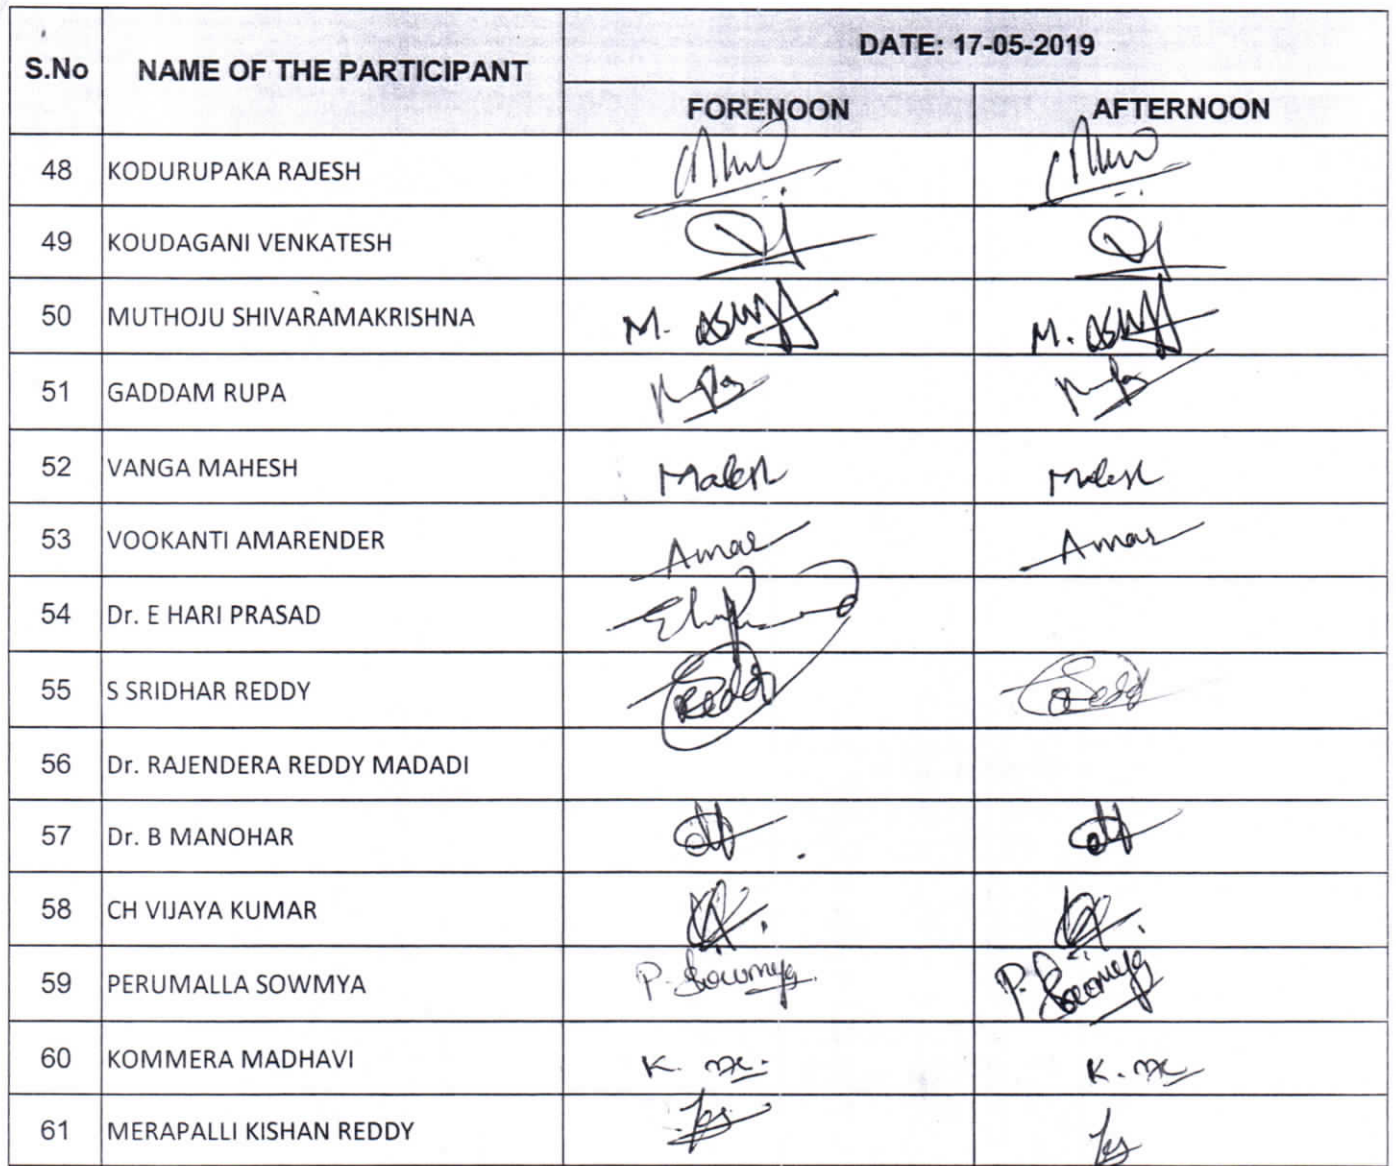 S.No NAME OF THE PARTICIPANT DATE: 17-05-2019
FORENOON AFTERNOON
48 KODURUPAKA RAJESH
49 KOUDAGANI VENKATESH
50 MUTHOJU SHIVARAMAKRISHNA M. M.
51 GADDAM RUPA
52 VANGA MAHESH Mahesh Mahesh
53 VOOKANTI AMARENDER Amar Amar
54 Dr. E HARI PRASAD
55 S SRIDHAR REDDY Reddy Reddy
56 Dr. RAJENDERA REDDY MADADI
57 Dr. B MANOHAR
58 CH VIJAYA KUMAR
59 PERUMALLA SOWMYA P. Sowmya P. Sowmya
60 KOMMERA MADHAVI K. K.
61 MERAPALLI KISHAN REDDY